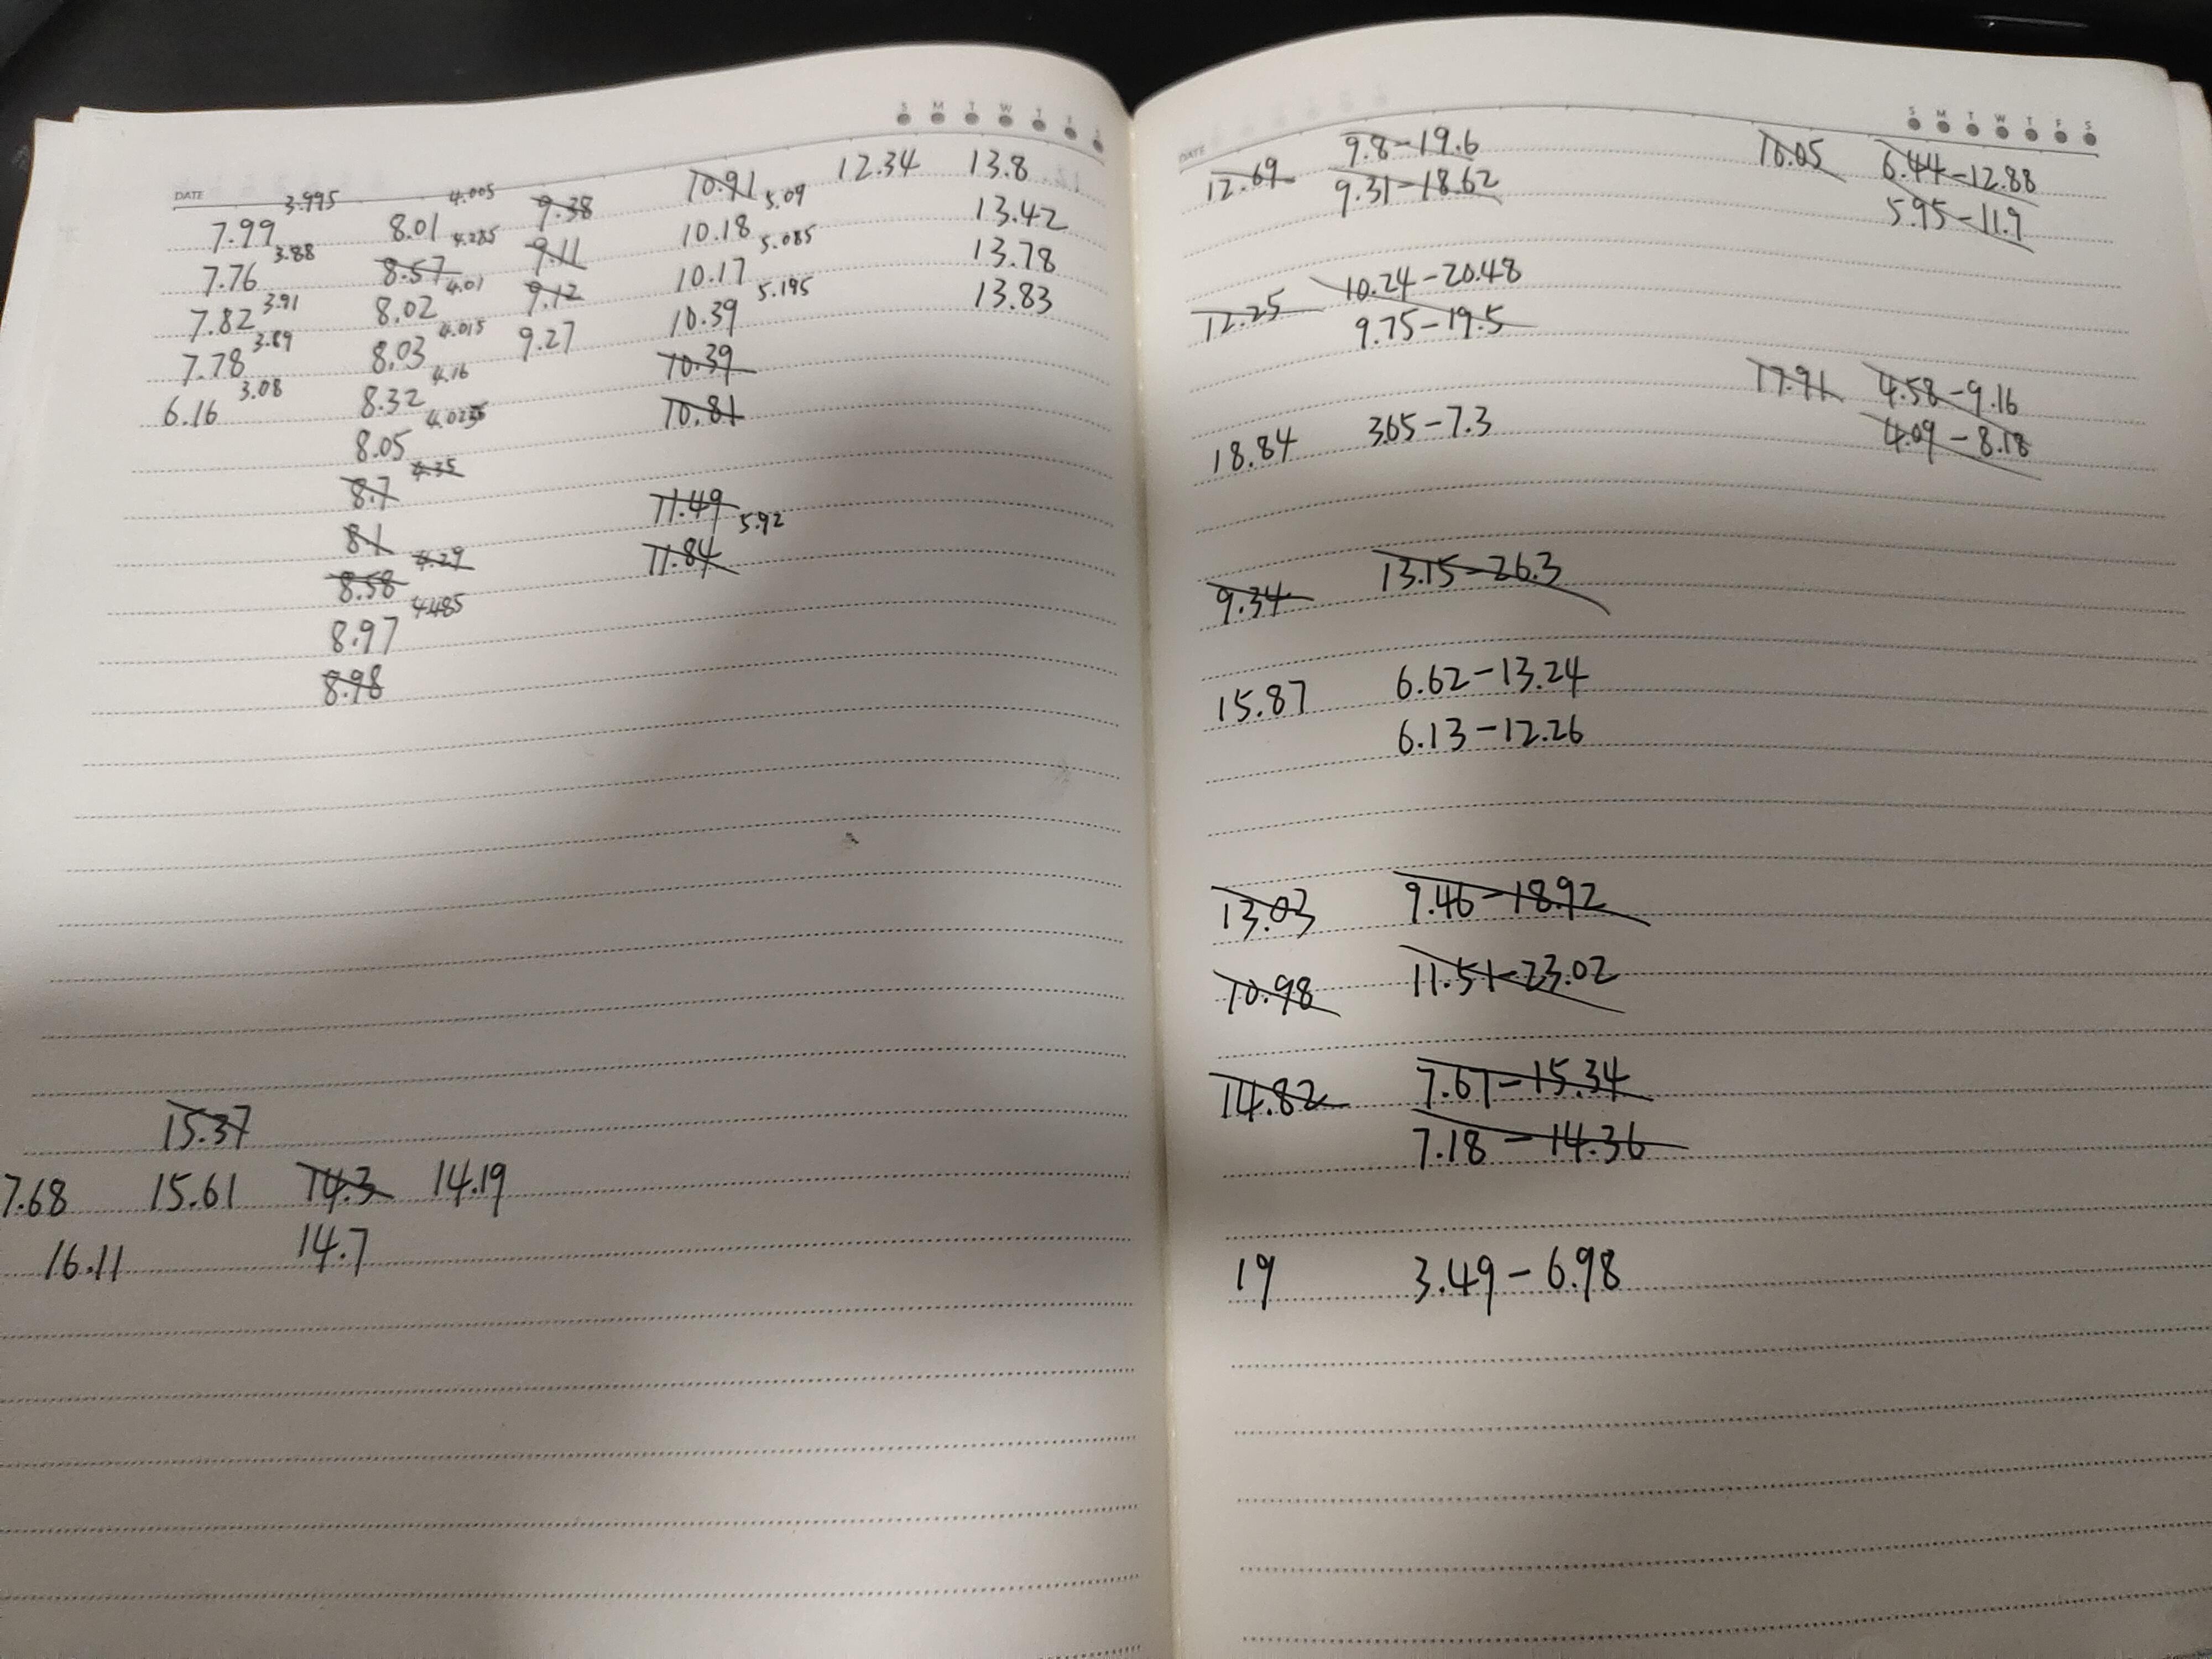 S M T W T F S
DATE
3.995 4.005 9.38 10.91 12.34 13.8
7.99 8.01 10.18 5.09 13.42
3.88 4.285 9.11 5.085
7.76 8.57 10.17 13.78
3.91 4.01 9.12 5.195
7.82 8.02 10.39 13.83
3.89 4.015 9.27
7.78 8.03 10.39
3.08 4.16
6.16 8.32 10.81
8.05
4.35
8.7 11.49
8.1 5.92
4.29 11.84
8.58
4.485
8.97
8.98
15.37
7.68 15.61 14.3 14.19
16.11 14.7
S M T W T F S
DATE
12.69 9.8-19.6 16.05 6.44-12.88
9.31-18.62 5.95-11.9
12.25 10.24-20.48
9.75-19.5
17.91 4.58-9.16
18.84 3.65-7.3 4.09-8.18
9.34 13.15-26.3
15.87 6.62-13.24
6.13-12.26
13.03 9.46-18.92
10.98 11.51-23.02
14.82 7.67-15.34
7.18-14.36
19 3.49-6.98